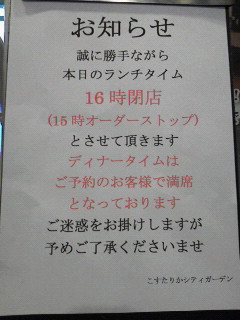 お知らせ
誠に勝手ながら
本日のランチタイム
16時閉店
(15時オーダーストップ)
とさせて頂きます
ディナータイムは
ご予約のお客様で満席
となっております
ご迷惑をお掛けしますが
予めご了承くださいませ
こすたりかシティガーデン